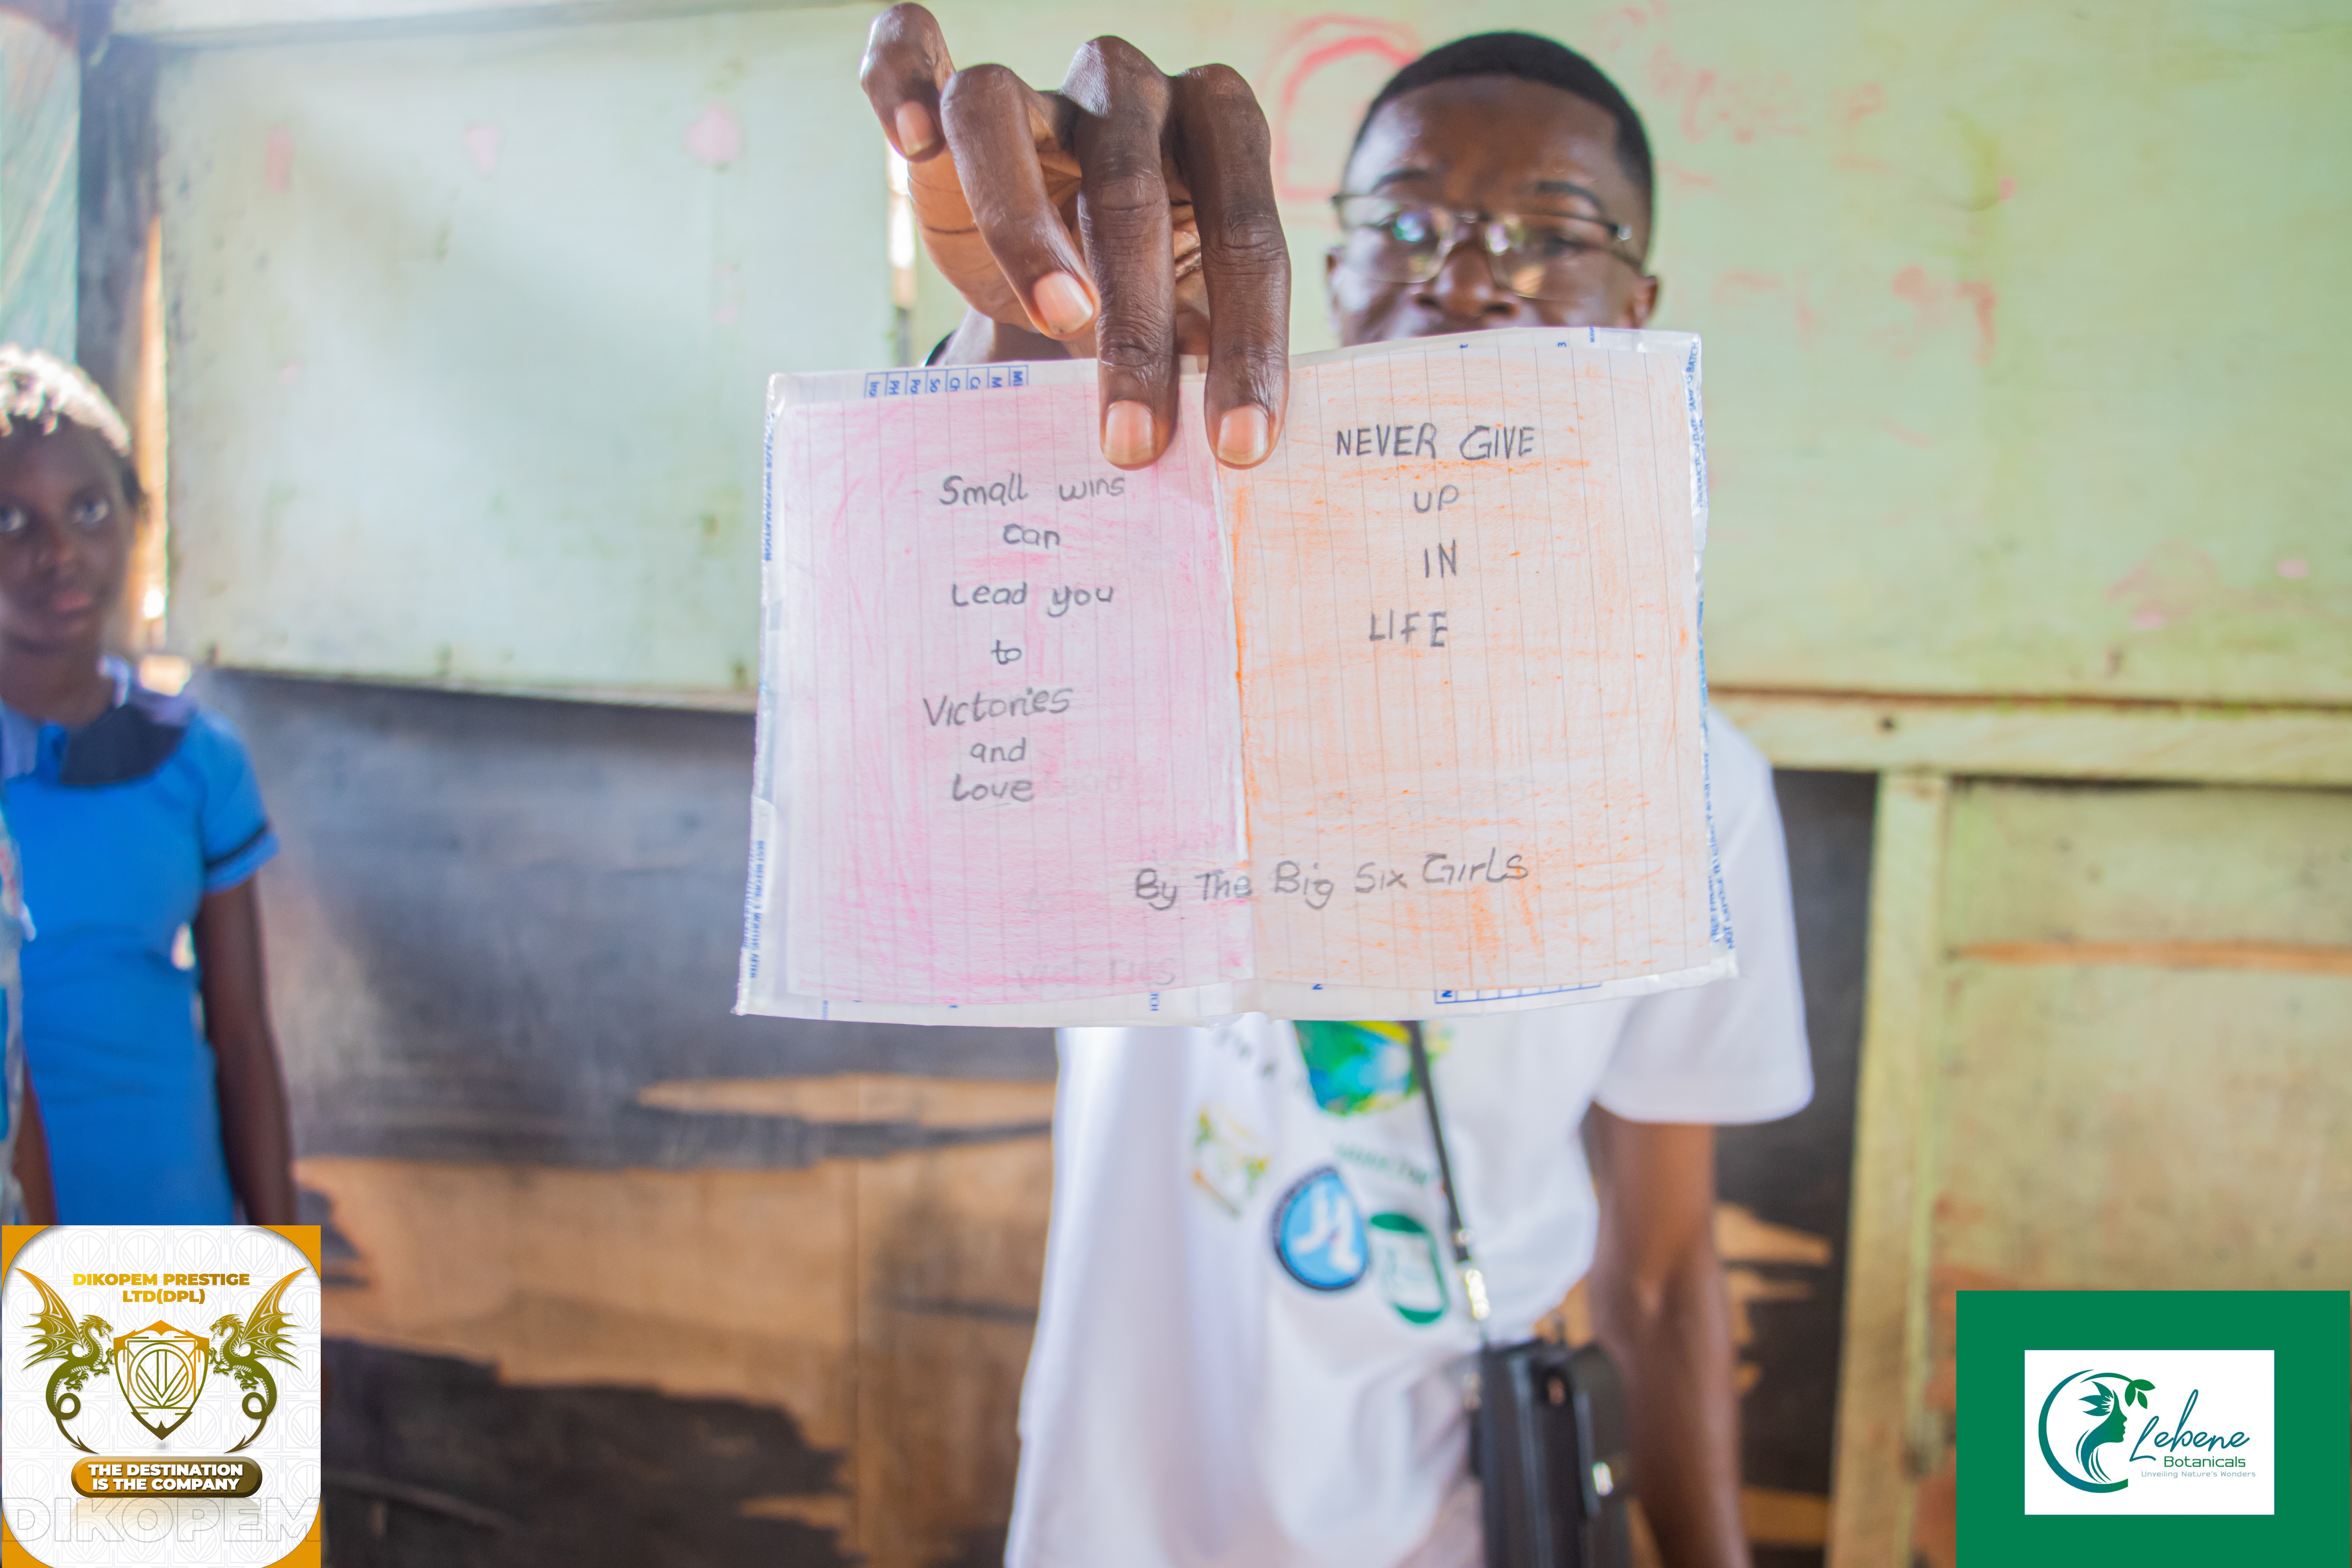 Small wins
can
Lead you
to
Victories
and
Love
NEVER GIVE
UP
IN
LIFE
By The Big Six Girls
DIKOPEM PRESTIGE
LTD(DPL)
THE DESTINATION
IS THE COMPANY
DIKOPEM
Lebene
Botanicals
Unveiling Nature's Wonders